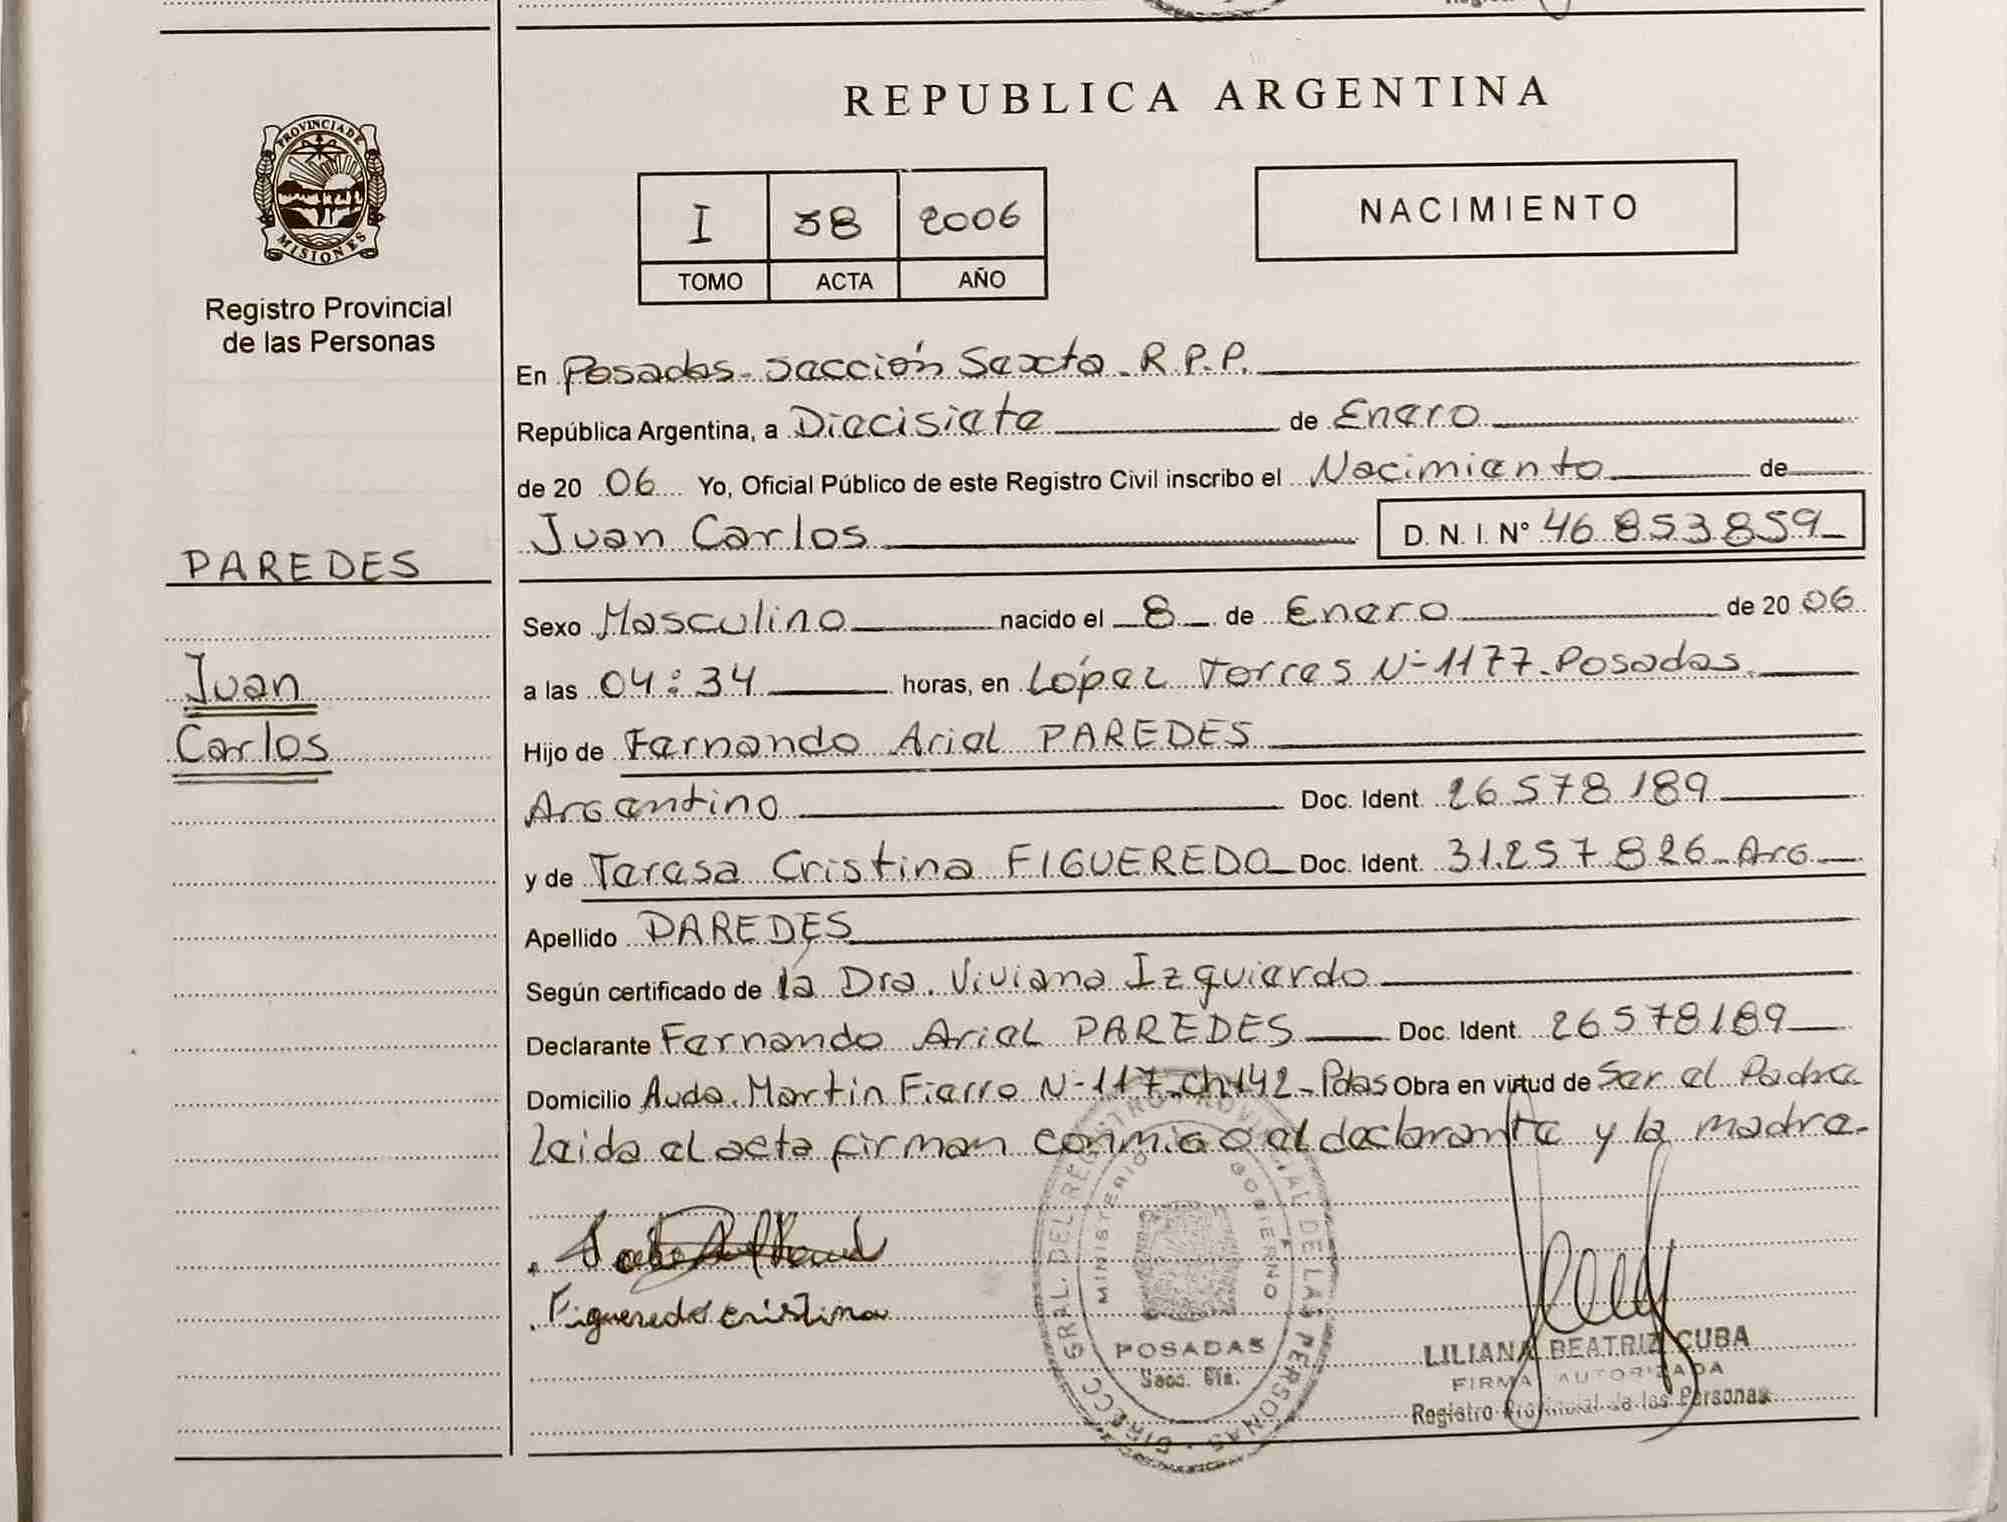 REPUBLICA ARGENTINA
PROVINCIA DE
MISIONES
Registro Provincial
de las Personas
I 38 2006
TOMO ACTA AÑO
NACIMIENTO
En Posadas - sección Sexta - R.P.P.
República Argentina, a Diecisiete de Enero
de 20 06 Yo, Oficial Público de este Registro Civil inscribo el Nacimiento de
Juan Carlos D. N. I. Nº 46.853.859
PAREDES
Juan
Carlos
Sexo Masculino nacido el 8 de Enero de 20 06
a las 04:34 horas, en López Torres Nº 1177 - Posadas.
Hijo de Fernando Ariel PAREDES
Argentino Doc. Ident. 26.578.189
y de Teresa Cristina FIGUEREDO Doc. Ident. 31.257.826 - Arg
Apellido PAREDES
Según certificado de la Dra. Viviana Izquierdo
Declarante Fernando Ariel PAREDES Doc. Ident. 26578189
Domicilio Avda. Martin Fierro N-117-ch142-Pdas Obra en virtud de Ser el Padre
Leida el acta firman conmigo el declarante y la madre.
Figueredo cristina
DIRECC. GRAL. DEL REGISTRO PROVINCIAL DE LAS PERSONAS
MINISTERIO GOBIERNO
POSADAS
Secc. 6ta.
LILIANA BEATRIZ CUBA
FIRMA AUTORIZADA
Registro Provincial de las Personas